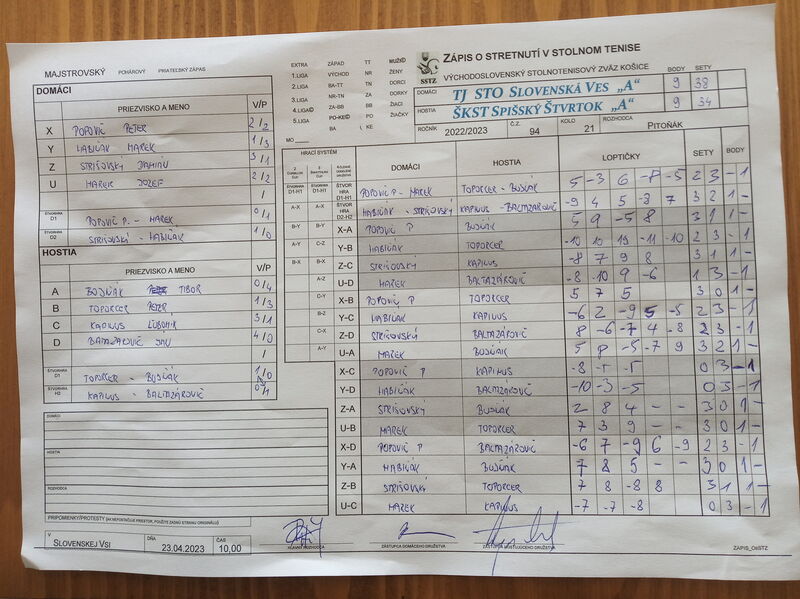 MAJSTROVSKÝ POHÁROVÝ PRIATEĽSKÝ ZÁPAS
EXTRA ZÁPAD TT MUŽI
1.LIGA VÝCHOD NR ŽENY
2.LIGA BA-TT ZA DORCI
3.LIGA NR-TN ZA DORKY
4.LIGA ZA-BB BB ŽIACI
5.LIGA PO-KE PO ŽIAČKY
BA KE
MO
SSTZ
ZÁPIS O STRETNUTÍ V STOLNOM TENISE
VÝCHODOSLOVENSKÝ STOLNOTENISOVÝ ZVÄZ KOŠICE
BODY SETY
DOMÁCI TJ STO SLOVENSKÁ VES „A“ 9 38
HOSTIA ŠKST SPIŠSKÝ ŠTVRTOK „A“ 9 34
ROČNÍK 2022/2023 Č.Z. 94 KOLO 21 ROZHODCA PITOŇÁK
DOMÁCI
PRIEZVISKO A MENO V/P
X POPOVIČ PETER 2/2
Y HABIŇÁK MAREK 1/3
Z STRIŠOVSKÝ 3/1
U MAREK JOZEF 2/2
/
ŠTVORHRA D1 POPOVIČ P. - MAREK 0/1
ŠTVORHRA D2 STRIŠOVSKÝ - HABIŇÁK 1/0
HOSTIA
PRIEZVISKO A MENO V/P
A BUJŇÁK TIBOR 0/4
B TOPORCER PETER 1/3
C KAPILUS ĽUBOMÍR 3/1
D BALTAZÁROVIČ JÁN 4/0
/
ŠTVORHRA D1 TOPORCER - BUJŇÁK 1/0
ŠTVORHRA H2 KAPILUS - BALTAZÁROVIČ 0/1
HRACÍ SYSTÉM DOMÁCI HOSTIA LOPTIČKY SETY BODY
D1-H1 D1-H1 ŠTVORHRA D1-H1 POPOVIČ P - MAREK TOPORCER - BUJŇÁK 5 -3 6 -8 -5 2 3 - 1
A-X A-X ŠTVORHRA D2-H2 HABIŇÁK - STRIŠOVSKÝ KAPILUS - BALTAZÁROVIČ -9 4 5 -8 7 3 2 1 -
B-Y B-Y X-A POPOVIČ P BUJŇÁK 5 9 -5 8 3 1 1 -
A-Y C-Z Y-B HABIŇÁK TOPORCER -10 10 19 -11 -10 2 3 - 1
B-X B-X Z-C STRIŠOVSKÝ KAPILUS -8 7 9 8 3 1 1 -
A-Z U-D MAREK BALTAZÁROVIČ -8 -10 9 -6 1 3 - 1
C-Y X-B POPOVIČ P TOPORCER 5 7 5 3 0 1 -
B-Z Y-C HABIŇÁK KAPILUS -6 2 -9 5 -5 2 3 - 1
C-X Z-D STRIŠOVSKÝ BALTAZÁROVIČ 8 -6 -7 4 -8 2 3 - 1
A-Y U-A MAREK BUJŇÁK 5 8 -5 -7 9 3 2 1 -
X-C POPOVIČ P KAPILUS -8 -5 -5 0 3 - 1
Y-D HABIŇÁK BALTAZÁROVIČ -10 -3 -5 0 3 - 1
Z-A STRIŠOVSKÝ BUJŇÁK 2 8 4 - - 3 0 1 -
U-B MAREK TOPORCER 7 3 9 - - 3 0 1 -
X-D POPOVIČ P BALTAZÁROVIČ -6 7 -9 6 -9 2 3 - 1
Y-A HABIŇÁK BUJŇÁK 7 8 5 - - 3 0 1 -
Z-B STRIŠOVSKÝ TOPORCER 7 8 -8 8 3 1 1 -
U-C MAREK KAPILUS -7 -7 -8 0 3 - 1
DOMÁCI
HOSTIA
ROZHODCA
PRIPOMIENKY/PROTESTY (AK NEPOSTAČUJE PRIESTOR, POUŽITE ZADNÚ STRANU ORIGINÁLU)
V SLOVENSKEJ VSI DŇA 23.04.2023 ČAS 10,00
HLAVNÝ ROZHODCA ZÁSTUPCA DOMÁCEHO DRUŽSTVA ZÁSTUPCA HOSŤUJÚCEHO DRUŽSTVA ZÁPIS_OSSTZ